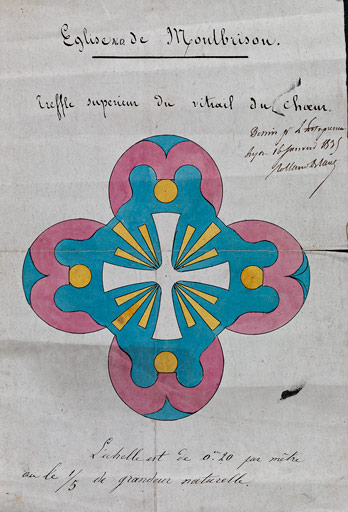 Eglise de Montbrison.
Treffle superieur du vitrail du Chœur.
Dessin
Lyon 16 Janvier 1835
L'echelle est de 0.m 20 par mètre
ou le 1/5 de grandeur naturelle.